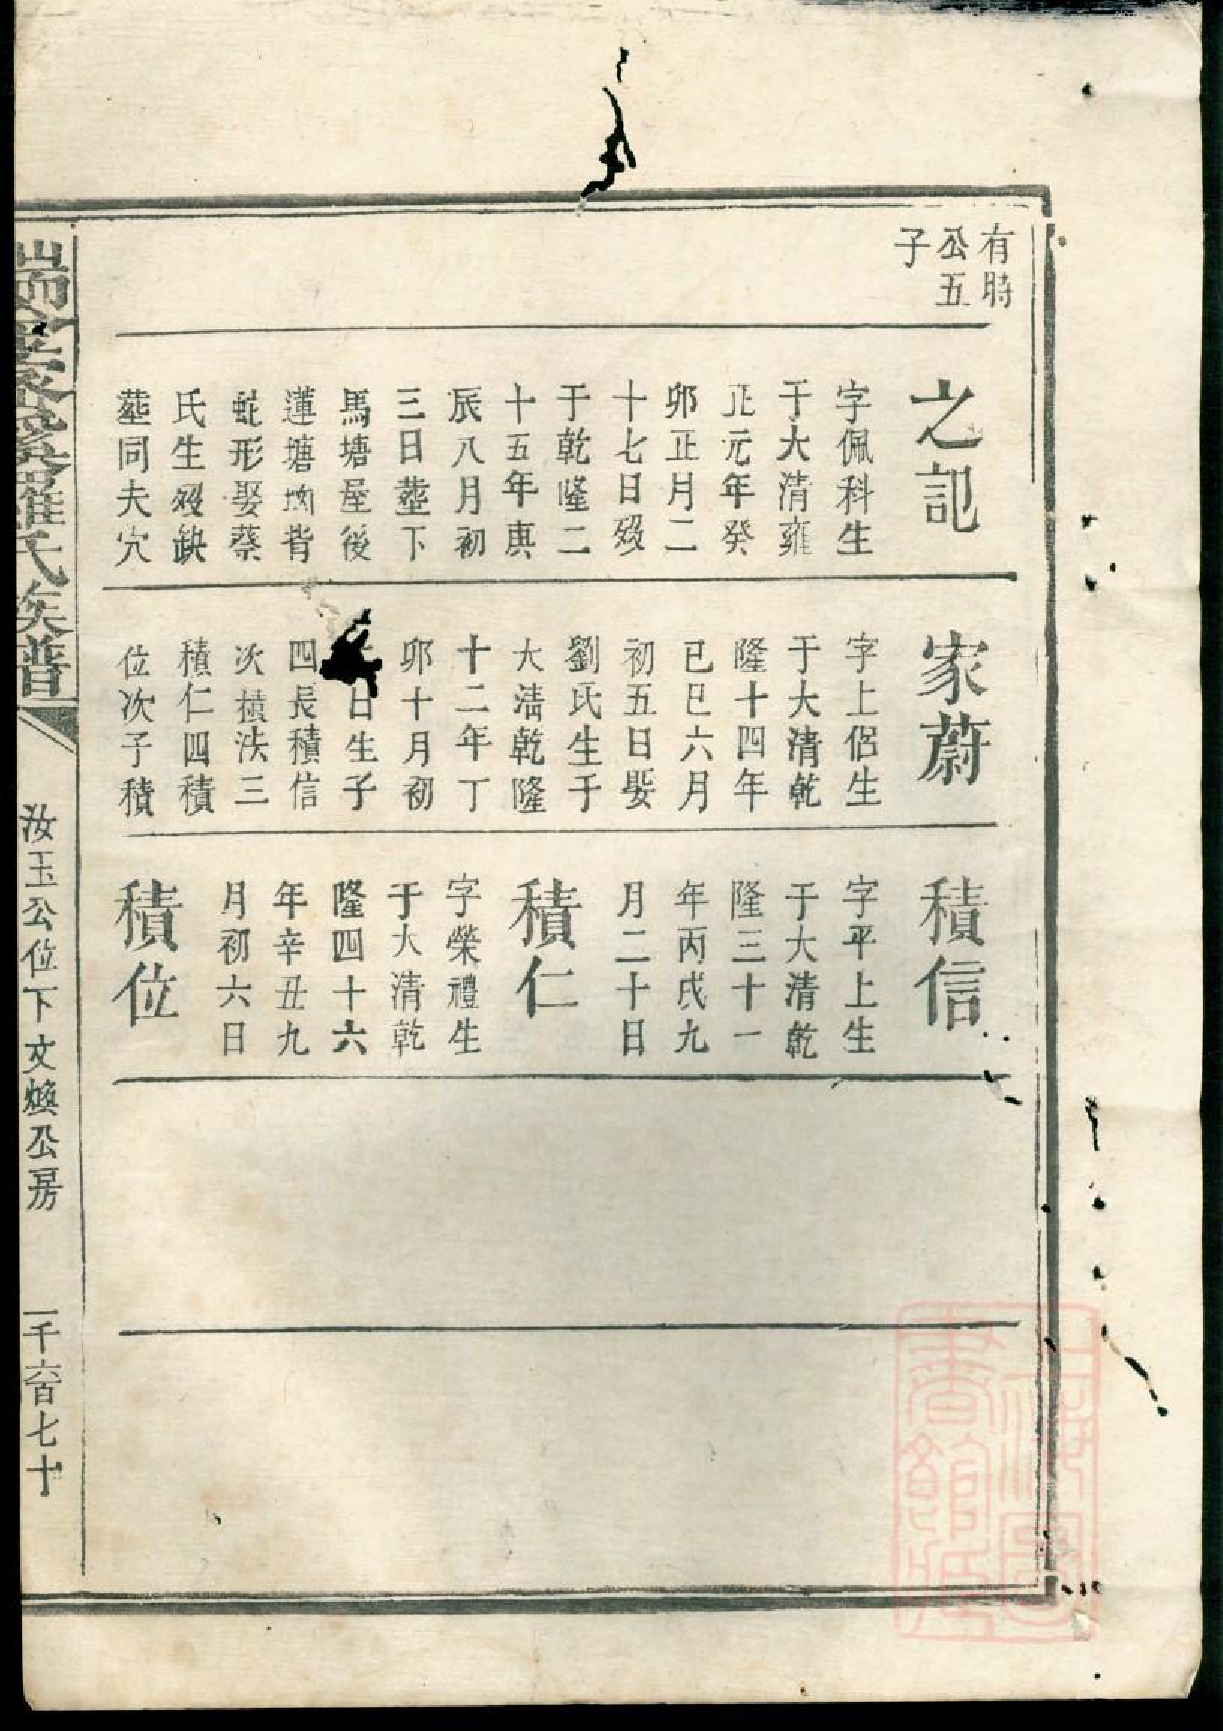 有時
公五
子
之記
字佩科生
于大清雍
正元年癸
卯正月二
十七日歿
于乾隆二
十五年庚
辰八月初
三日塟下
馬塘屋後
蓮塘坳背
蛇形娶蔡
氏生歿缺
塟同夫穴
家蔚
字上侶生
于大清乾
隆十四年
己巳六月
初五日娶
劉氏生于
大清乾隆
十二年丁
卯十月初
日生子
四長積信
次積法三
積仁四積
位次子積
積信
字平上生
于大清乾
隆三十一
年丙戌九
月二十日
積仁
字榮禮生
于大清乾
隆四十六
年辛丑九
月初六日
積位
羅氏族譜
汝玉公位下文煥公房
一千六百七十